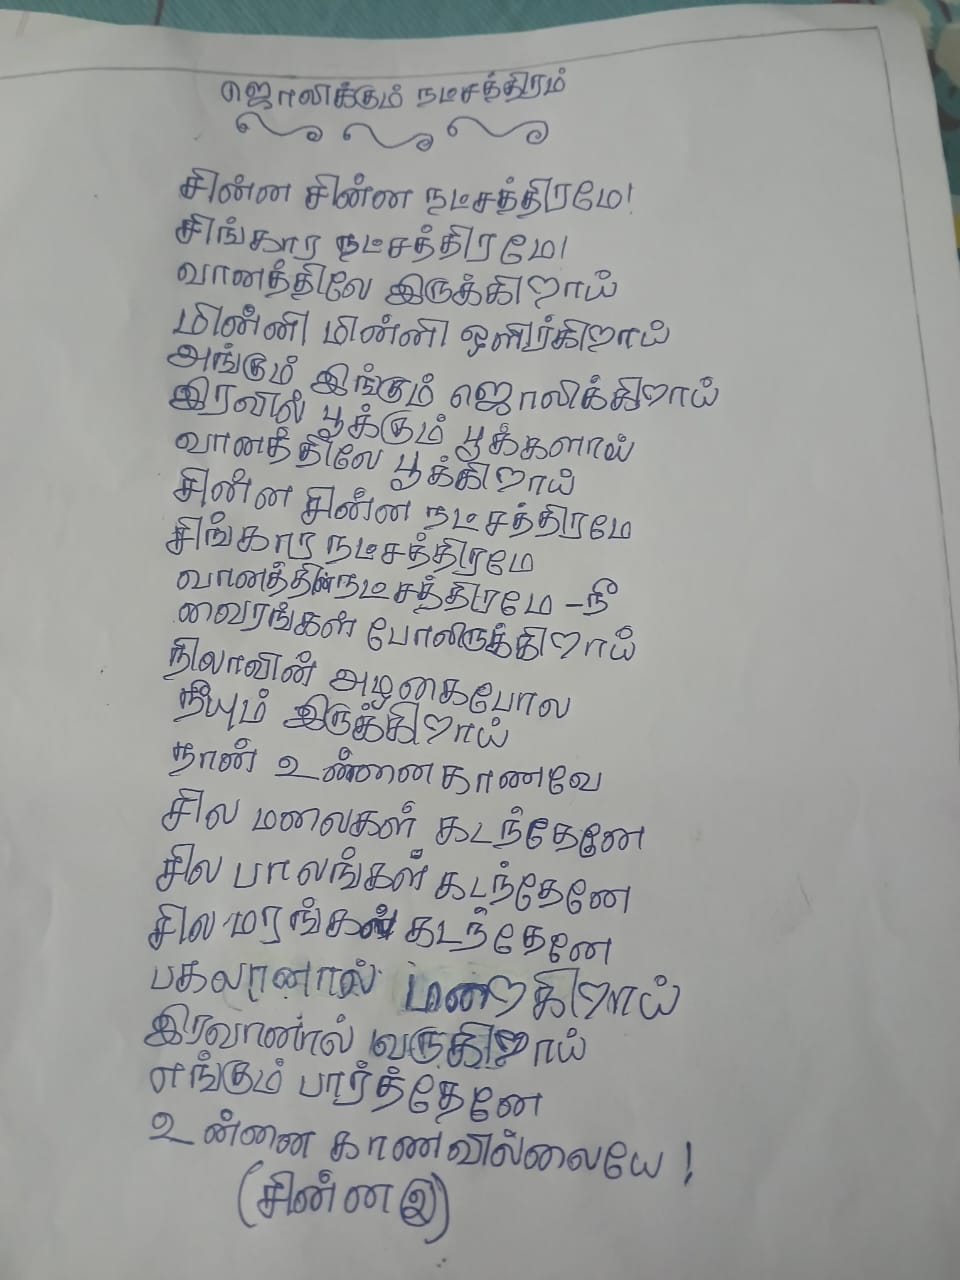 ஜொலிக்கும் நட்சத்திரம்
சின்ன சின்ன நட்சத்திரமே!
சிங்கார நட்சத்திரமே!
வானத்திலே இருக்கிறாய்
மின்னி மின்னி ஒளிர்கிறாய்
அங்கும் இங்கும் ஜொலிக்கிறாய்
இரவில் பூக்கும் பூக்களாய்
வானத்திலே பூக்கிறாய்
சின்ன சின்ன நட்சத்திரமே
சிங்கார நட்சத்திரமே
வானத்தின் நட்சத்திரமே - நீ
வைரங்கள் போலிருக்கிறாய்
நிலாவின் அழகைபோல
நீயும் இருக்கிறாய்
நான் உன்னை காணவே
சில மலைகள் கடந்தேனே
சில பாலங்கள் கடந்தேனே
சில மரங்கள் கடந்தேனே
பகலானால்
இரவானால் வருகிறாய்
எங்கும் பார்த்தேனே
உன்னை காணவில்லையே!
(சின்ன இ)